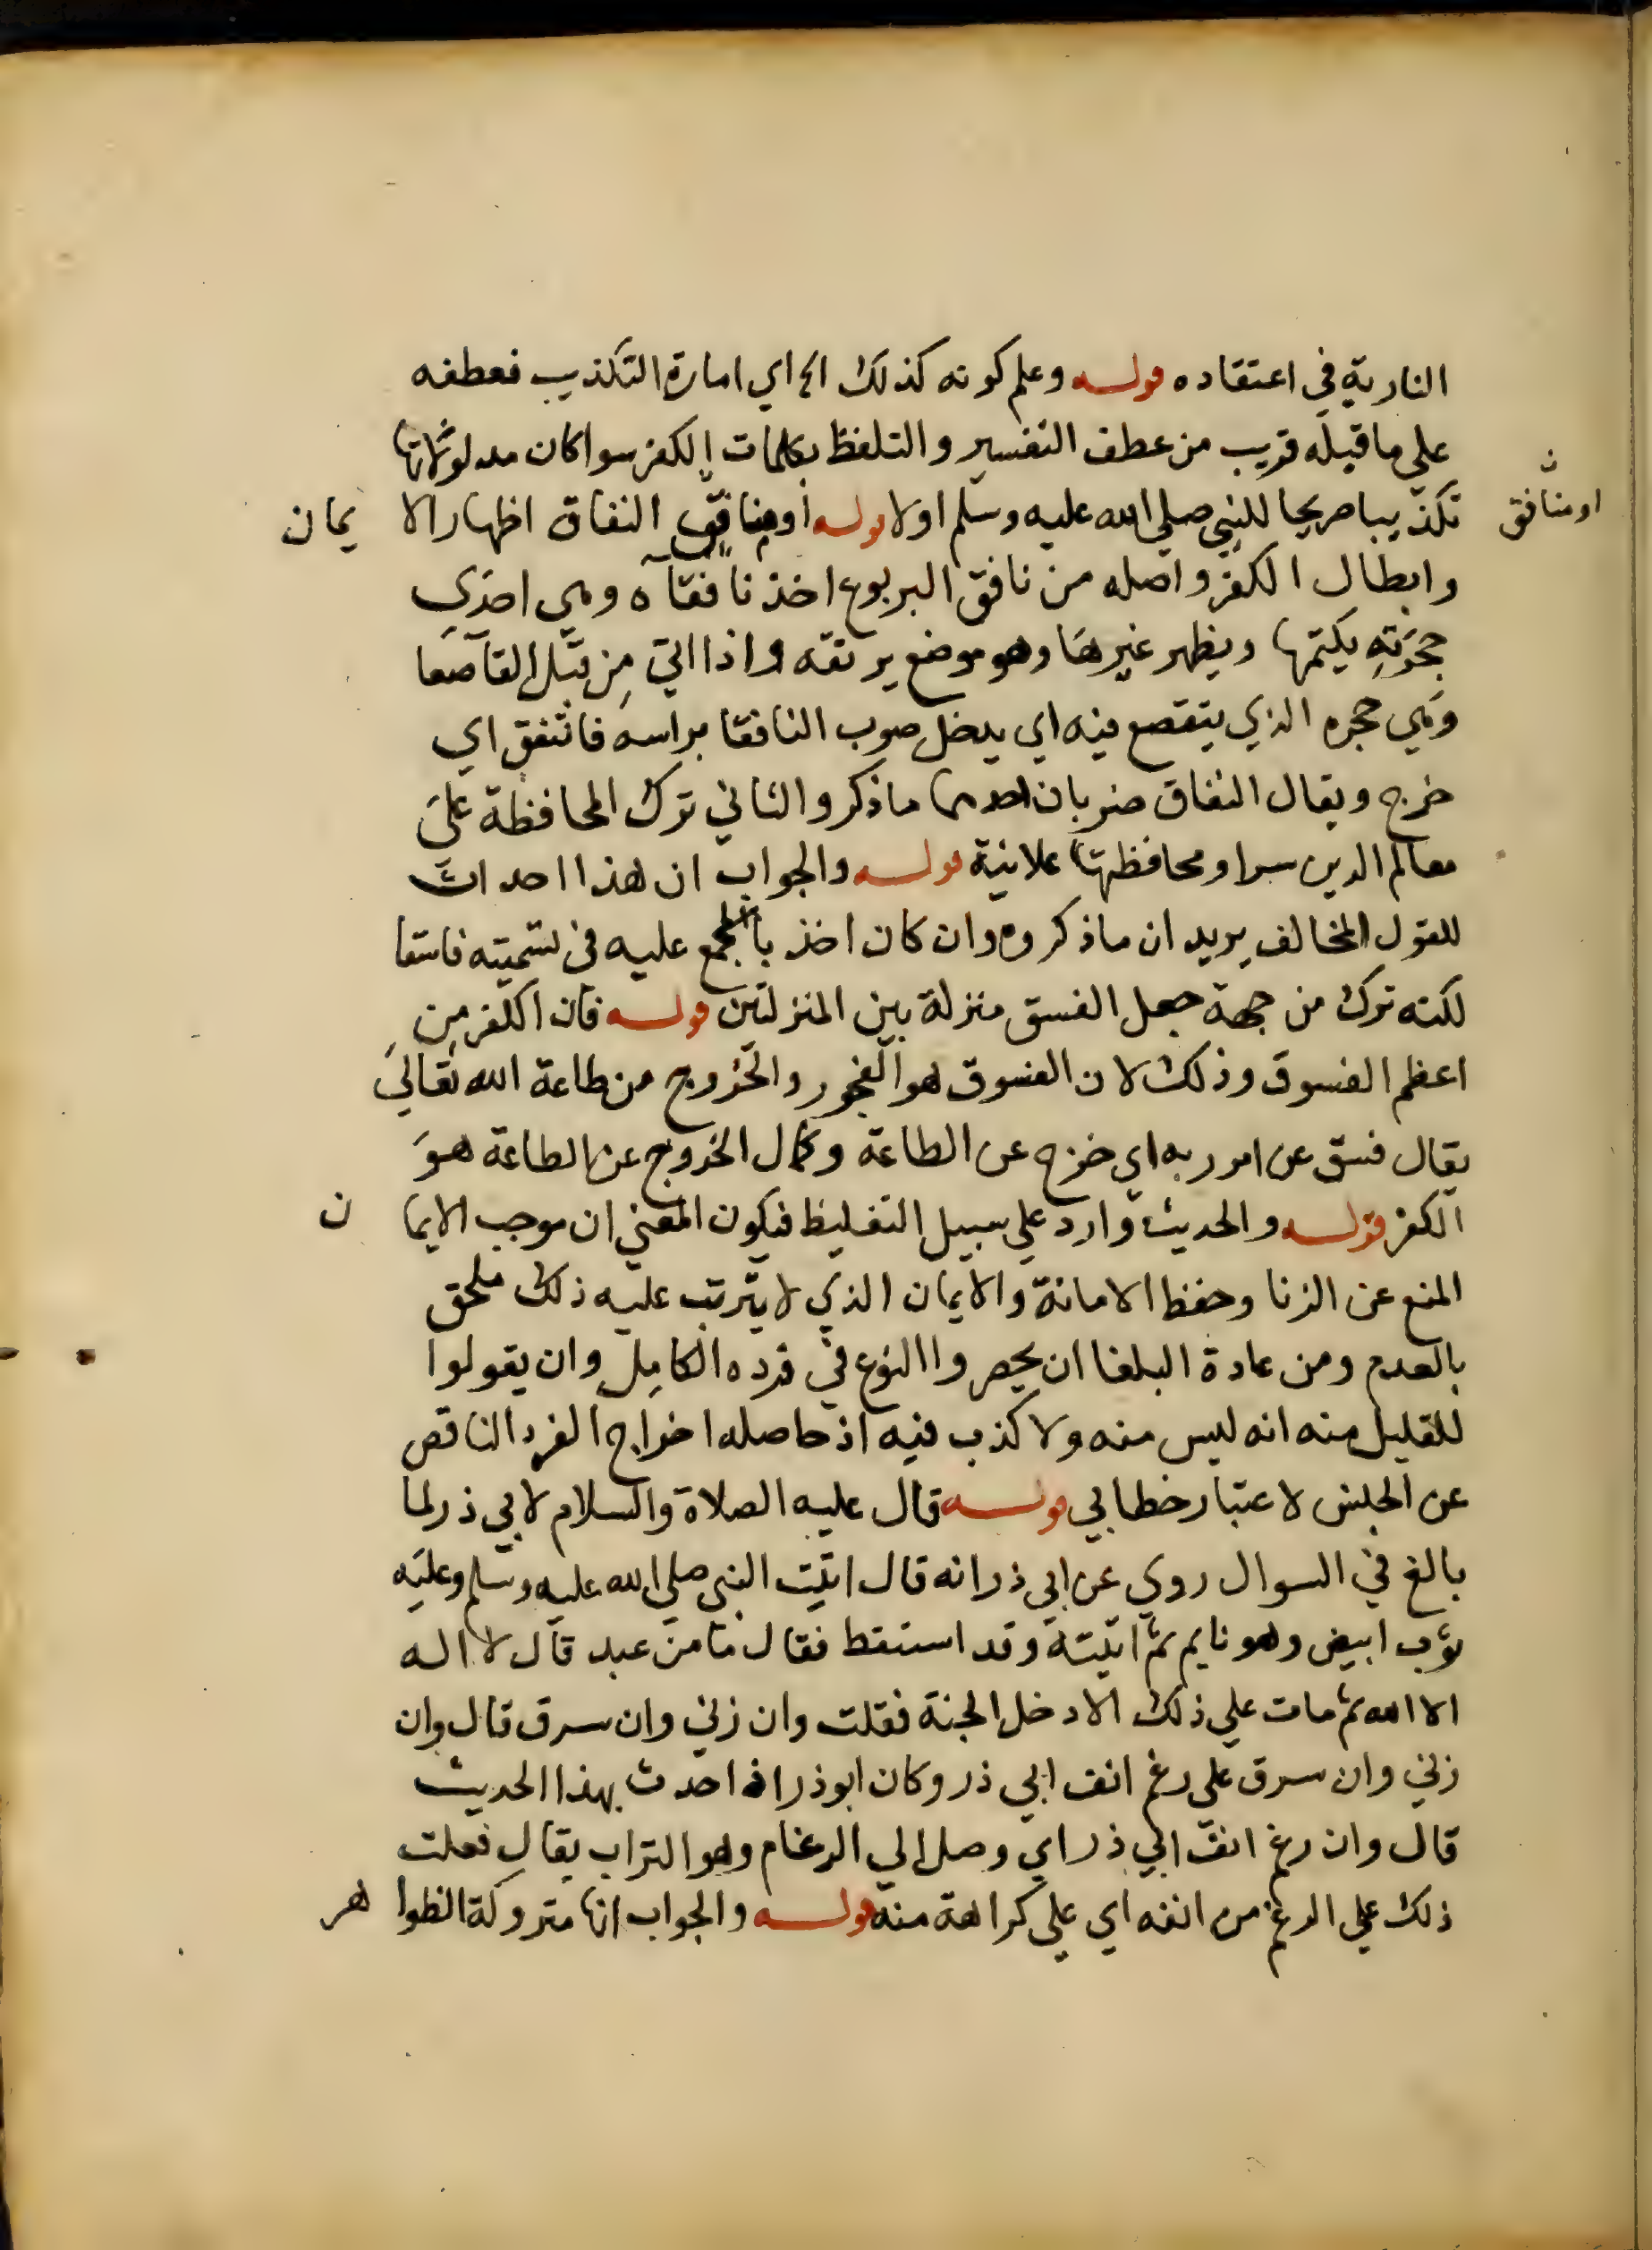 النارية في اعتقاده قوله وعلم كونه كذلك الخ اي امارة التكذيب فعطفه
علي ما قبله قريب من عطف التفسير والتلفظ بكلمات الكفر سوا كان مدلولاتها
تكذيبا صريحا للنبي صلي الله عليه وسلم اولا قوله او منافق النفاق اظهار الايمان
او منافق
وابطال الكفر واصله من نافق اليربوع اخذ نافقآه وهي احدي
جحرته يكتمها ويظهر غيرها وهو موضع يرققه واذا اتي من قبل القاصعا
وهي جحره الذي يتقصع فيه اي يدخل صوب النافقا براسه فانتفق اي
خرج ويقال النفاق ضربان احدهما ما ذكر والثاني ترك المحافظة علي
معالم الدين سرا ومحافظتها علانية قوله والجواب ان هذا احداث
للقول المخالف يريد ان ما ذكروه وان كان اخذ بالمجمع عليه في تسميته فاسقا
لكنه ترك من جهة جعل الفسق منزلة بين المنزلتين قوله فان الكفر من
اعظم الفسوق وذلك لان الفسوق هو الفجور والخروج من طاعة الله تعالي
يقال فسق عن امر ربه اي خرج عن الطاعة وكمال الخروج عن الطاعة هو
الكفر قوله والحديث وارد علي سبيل التغليظ فيكون المعني ان موجب الايمان
المنع عن الزنا وحفظ الامانة والايمان الذي لا يترتب عليه ذلك ملحق
بالعدم ومن عادة البلغا ان يحصروا النوع في فرده الكامل وان يقولوا
للقليل منه انه ليس منه ولا كذب فيه اذ حاصله اخراج الفرد الناقص
عن الجنس لاعتبار خطابي قوله قال عليه الصلاة والسلام لابي ذر لما
بالغ في السوال روي عن ابي ذر انه قال اتيت النبي صلي الله عليه وسلم وعليه
ثوب ابيض وهو نايم ثم اتيته وقد استقظ فقال ما من عبد قال لا اله
الا الله ثم مات علي ذلك الا دخل الجنة فقلت وان زني وان سرق قال وان
زني وان سرق علي رغم انف ابي ذر وكان ابو ذر اذا حدث بهذا الحديث
قال وان رغم انف ابي ذر اي وصل الي الرغام وهو التراب يقال فعلت
ذلك علي الرغم من انفه اي علي كراهة منه قوله والجواب انها متروكة الظواهر